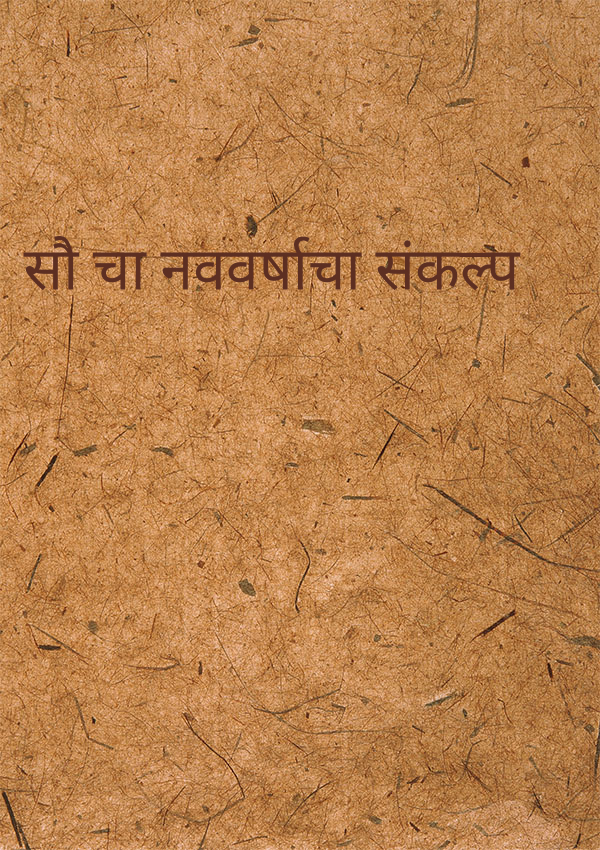 सौ चा नववर्षाचा संकल्प